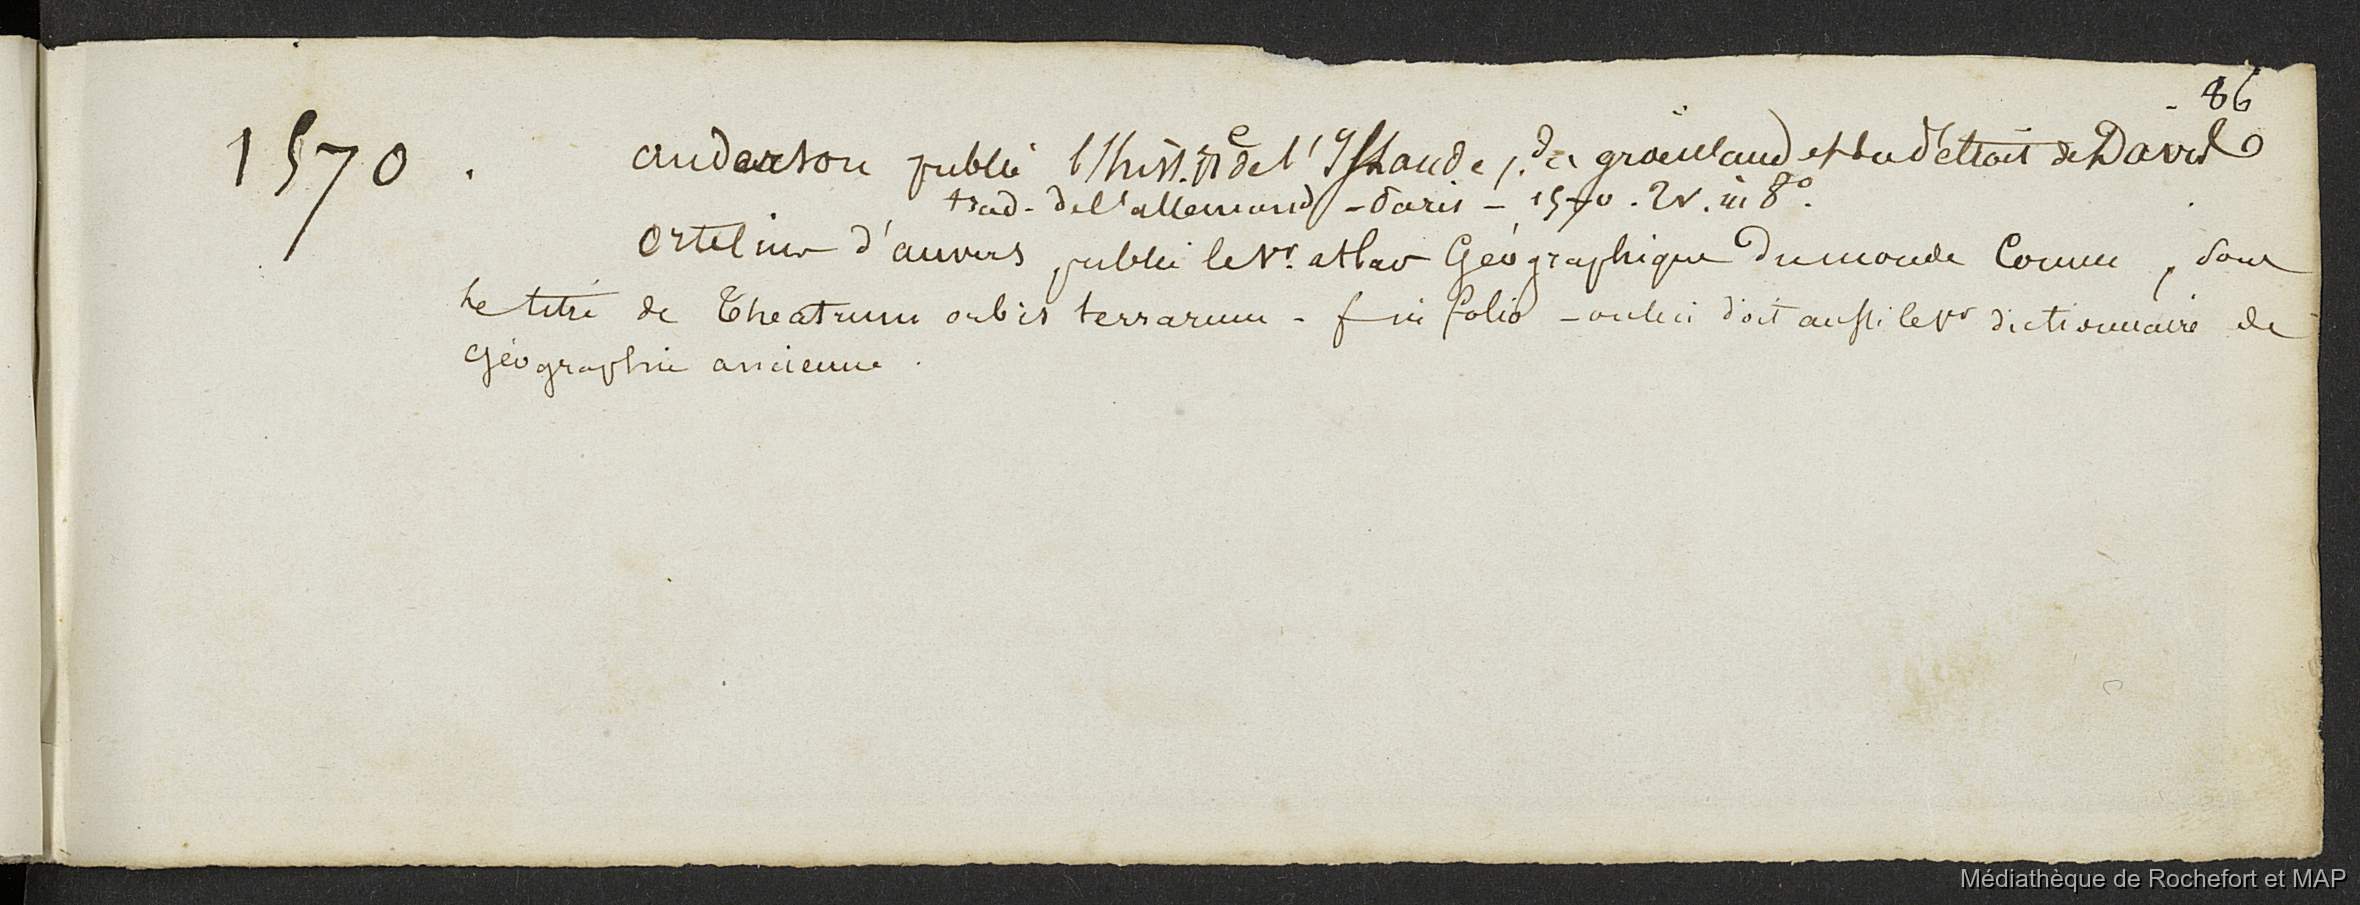 86
1570. anderson publie l'hist. nlle de l'Islande, du groënland et du détroit de David
trad. de l'allemand - Paris - 1570. 2 v. in 8°.
Ortelius d'anvers publie le 1er. atlas Géographique du monde Connu, sous
le titre de Theatrum orbis terrarum - in folio - on lui doit aussi le 1er dictionnaire de
Géographie ancienne.
Médiathèque de Rochefort et MAP